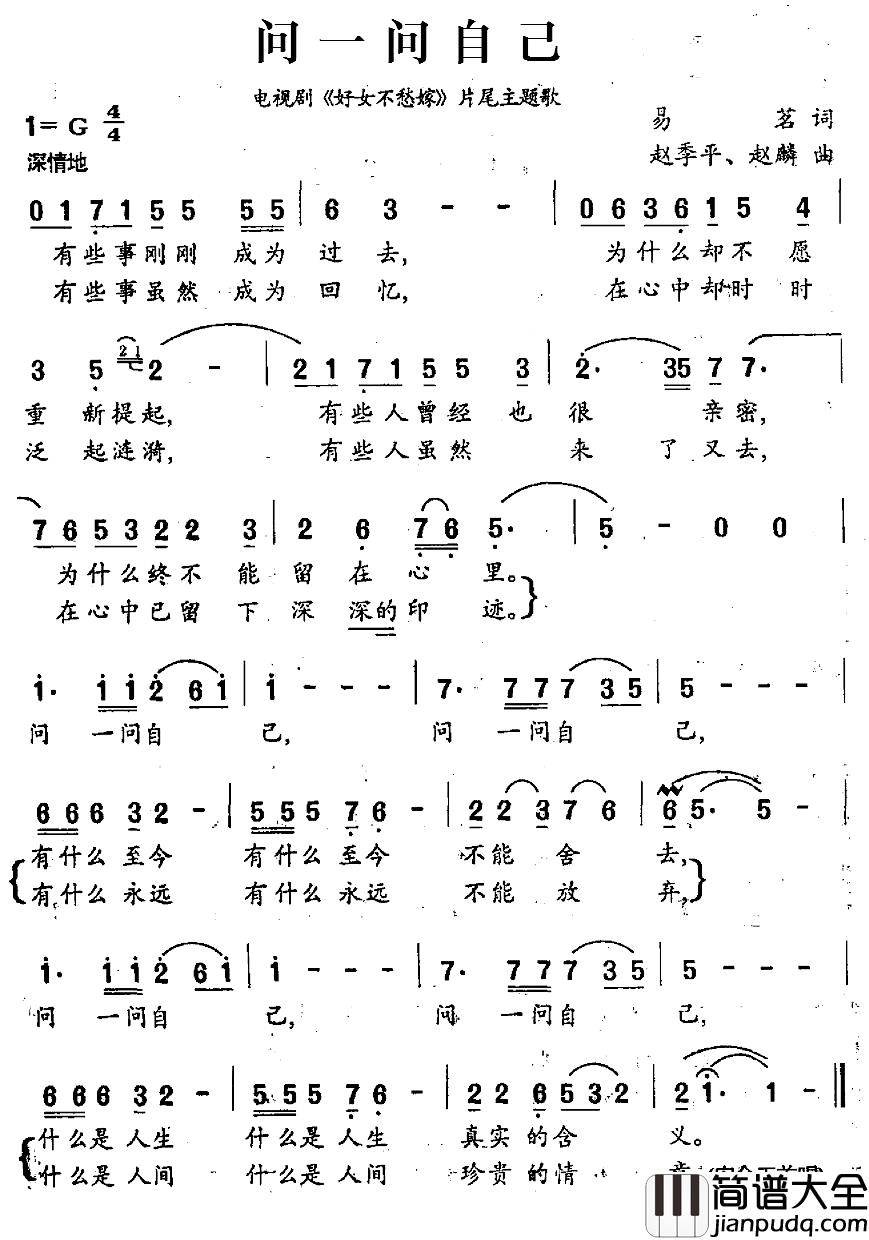 问一问自己
电视剧《好女不愁嫁》片尾主题歌
1=G 4/4
易 茗 词
深情地
赵季平、赵麟 曲
0 1 7 1 5 5 5 5 | 6 3 - - | 0 6 3 6 1 5 4 |
有些事刚刚 成为 过 去, 为什么却不 愿
有些事虽然 成为 回 忆, 在心中却时 时
3 5 2 1 2 - | 2 1 7 1 5 5 3 | 2· 3 5 7 7· |
重 新提起, 有些人曾经 也 很 亲密,
泛 起涟漪, 有些人虽然 来 了 又去,
7 6 5 3 2 2 3 | 2 6 7 6 5· | 5 - 0 0 |
为什么终不 能 留 在 心 里。
在心中已留 下 深 深的印 迹。
1· 1 1 2 6 1 | 1 - - - | 7· 7 7 7 3 5 | 5 - - - |
问 一问自 己, 问 一问自 己,
6 6 6 3 2 - | 5 5 5 7 6 - | 2 2 3 7 6 | 6 5· 5 - |
有什么 至今 有什么 至今 不能 舍 去,
有什么 永远 有什么 永远 不能 放 弃,
1· 1 1 2 6 1 | 1 - - - | 7· 7 7 7 3 5 | 5 - - - |
问 一问自 己, 问 一问自 己,
6 6 6 3 2 - | 5 5 5 7 6 - | 2 2 6 5 3 2 | 2 1· 1 - ‖
什么是 人生 什么是 人生 真实 的含 义。
什么是 人间 什么是 人间 珍贵 的情
简谱大全
jianpudq.com